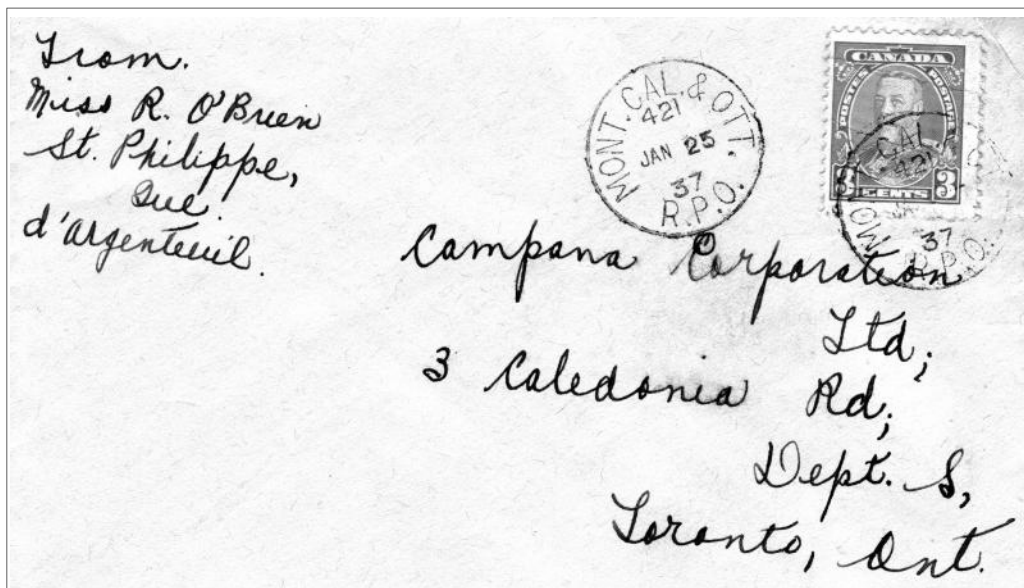 From.
Miss R. O'Brien
St. Philippe,
Que.
d'Argenteuil.
MONT. CAL. & OTT.
421
JAN 25
37
R.P.O.
CANADA
POSTES POSTAGE
3 CENTS 3
CAL.
421
JA
37
MO R.P.O.
Campana Corporation
Ltd;
3 Caledonia Rd;
Dept. S,
Toronto, Ont.